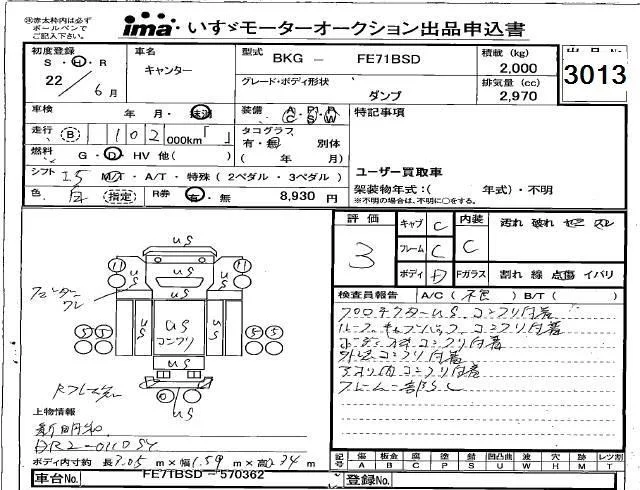 ㊟赤太枠内は必ず
ボールペンで
ご記入下さい。
ima いすゞモーターオークション出品申込書
初度登録
S・H・R
22/6月
車名
キャンター
型式
BKG - FE71BSD
グレード・ボディ形状
ダンプ
積載(kg)
2,000
排気量(cc)
2,970
出品No.
3013
車検 年 月・抹消
装備 A C・P S・R W
特記事項
走行 B 102 000km「 」
タコグラフ
有・無 別体
( 年 月)
燃料 G・D・HV 他( )
シフト I.5 M/T・A/T・特殊(2ペダル・3ペダル)
ユーザー買取車
架装物年式:( 年式)・不明
※不明の場合は、不明に○をする。
色 白 (指定) R券 有・無 8,930円
評価
3
キャブ C
フレーム C
ボディ D
内装
C
Fガラス
汚れ 破れ ヤニ スレ
割れ 線 点傷 イバリ
検査員報告 A/C(不良) B/T( )
プロテクターUS. コンクリ付着
コンクリ付着
外廻コンクリ付着
コンクリ付着
フレーム一部SC
US
11
11
US
US
US
US
US
コンクリ
5
5
5
5
US
上物情報
新明和
DR2-011054
ボディ内寸約 長3.05m×幅1.59m×高2.34m
記号 傷 板金 腐 塗 錆 凹凸曲 波 穴 跡 汚 レンズ割
A B C P S U W H M T L
車台No. FE71BSD-570362
登録No.